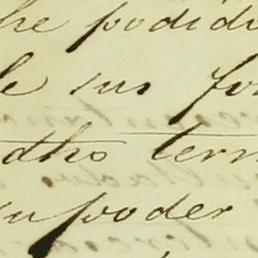 he podid
e sus fo
dho term
su poder